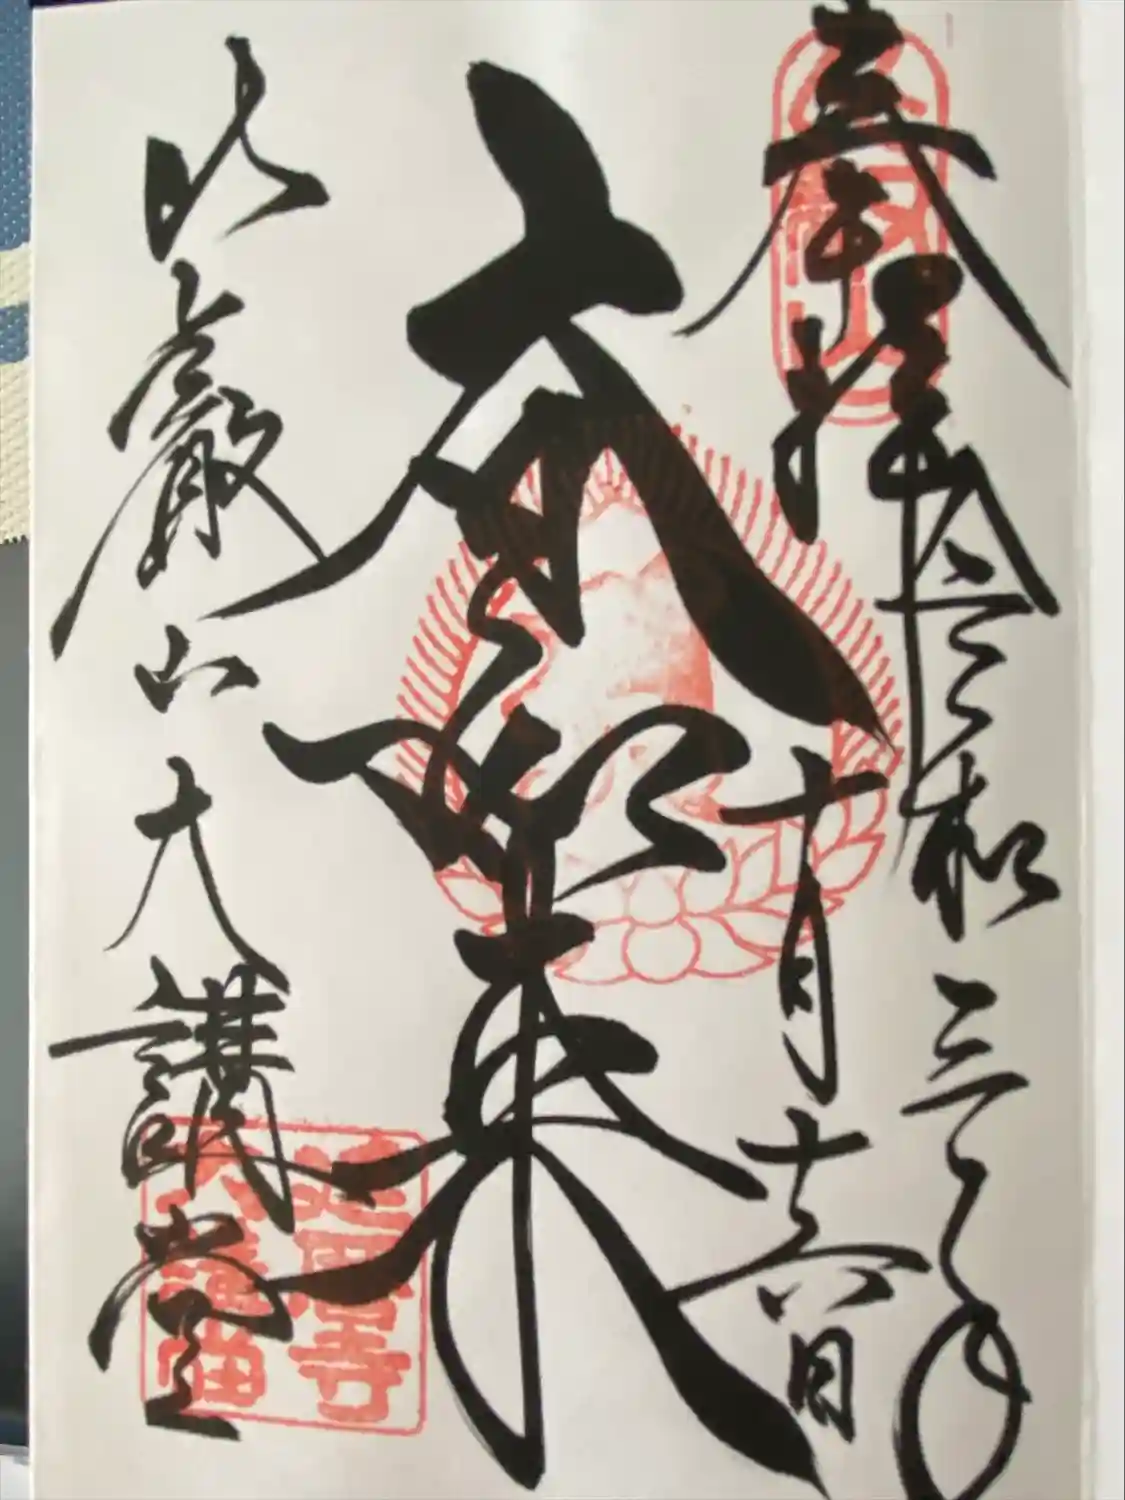 奉拝
令和三年
十月十六日
大日如来
比叡山大講堂
延暦寺
大講堂